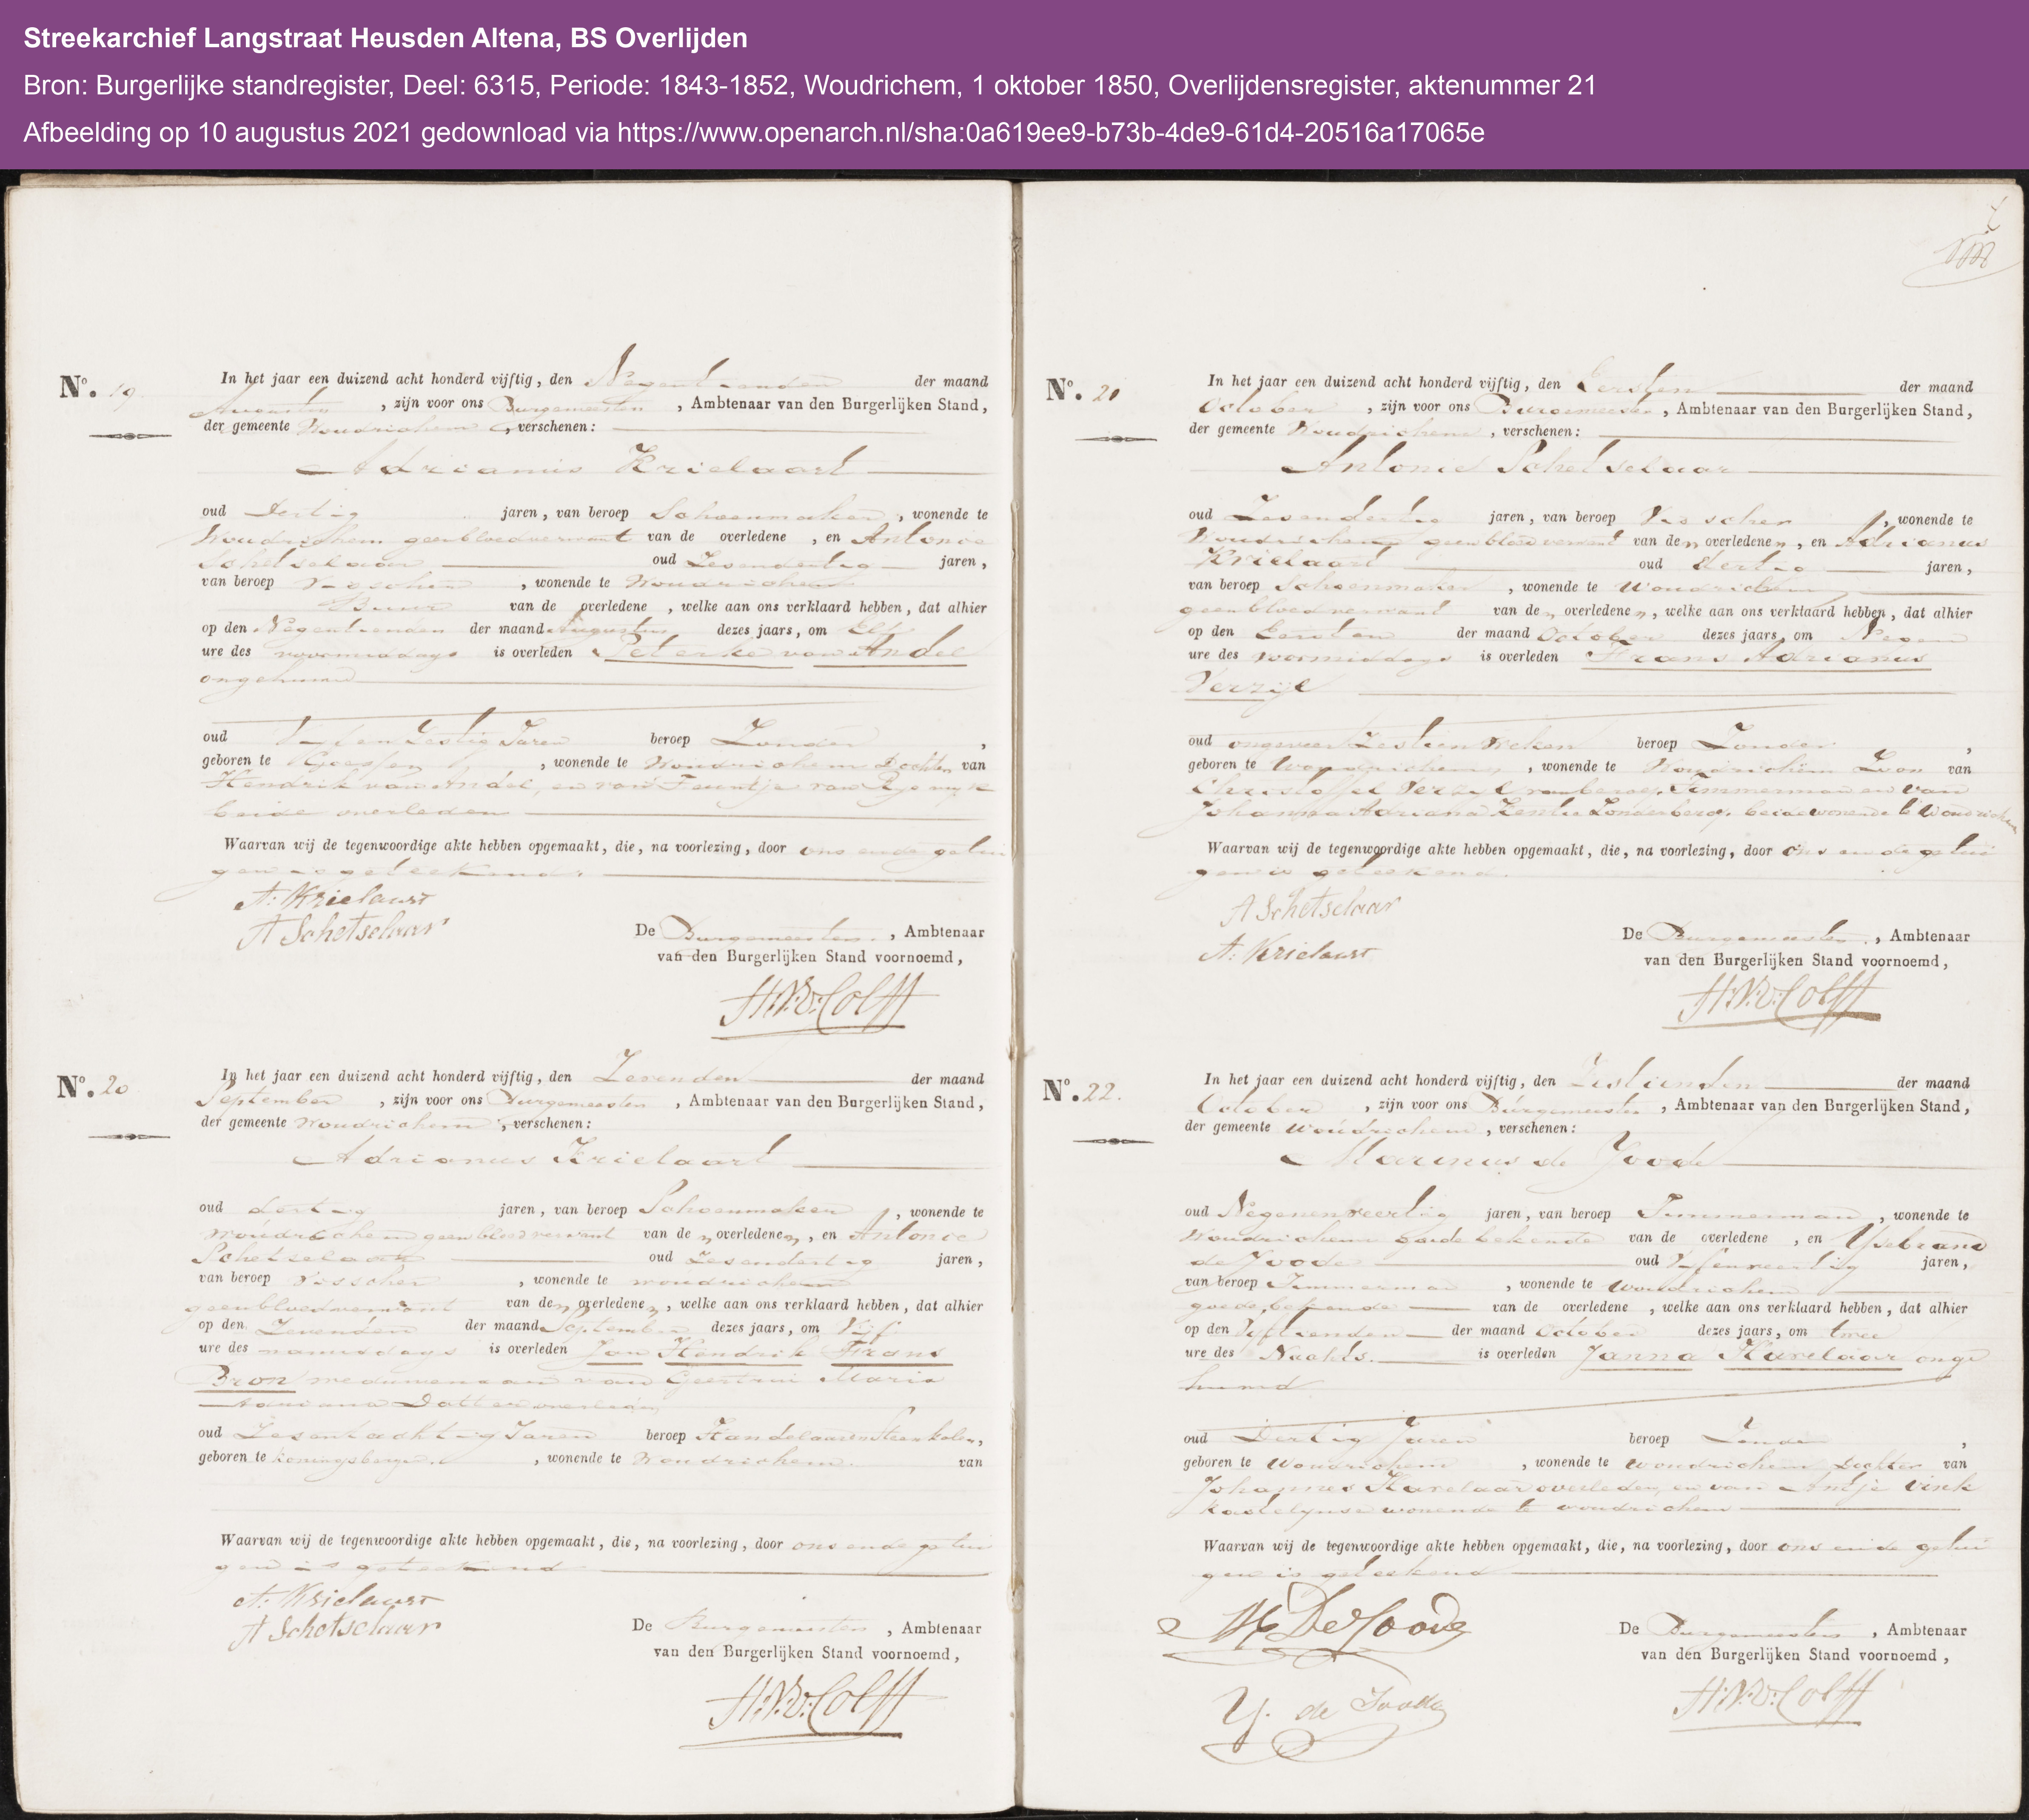 Streekarchief Langstraat Heusden Altena, BS Overlijden
Bron: Burgerlijke standregister, Deel: 6315, Periode: 1843-1852, Woudrichem, 1 oktober 1850, Overlijdensregister, aktenummer 21
Afbeelding op 10 augustus 2021 gedownload via https://www.openarch.nl/sha:0a619ee9-b73b-4de9-61d4-20516a17065e
No. 19
In het jaar een duizend acht honderd vijftig, den Negentienden der maand
Augustus, zijn voor ons Burgemeester, Ambtenaar van den Burgerlijken Stand,
der gemeente Woudrichem, verschenen:
Adrianus Krielaart
oud Dertig jaren, van beroep Schoenmaker, wonende te
Woudrichem geenbloedverwant van de overledene, en Antonie
Schetselaar oud Zesendertig jaren,
van beroep Visscher, wonende te Woudrichem
Buur van de overledene, welke aan ons verklaard hebben, dat alhier
op den Negentienden der maand Augustus dezes jaars, om Elf
ure des voormiddags is overleden Peterke van Andel
ongehuwd
oud en Zestig Jaren beroep Zonder,
geboren te, wonende te Woudrichem Dochter van
Hendrik van Andel, en van
beide overleden
Waarvan wij de tegenwoordige akte hebben opgemaakt, die, na voorlezing, door ons en de getui
gen is geteekend.
A: Krielaart
A Schetselaar
De Burgemeester, Ambtenaar
van den Burgerlijken Stand voornoemd,
H:N:v:Colff
No. 20
In het jaar een duizend acht honderd vijftig, den Zevenden der maand
September, zijn voor ons Burgemeester, Ambtenaar van den Burgerlijken Stand,
der gemeente Woudrichem, verschenen:
Adrianus Krielaart
oud dertig jaren, van beroep Schoenmaker, wonende te
woudrichem geenbloedverwant van den overledenen, en Antonie
Schetselaar oud Zesendertig jaren,
van beroep Visscher, wonende te woudrichem
geenbloedverwant van den overledenen, welke aan ons verklaard hebben, dat alhier
op den Zevenden der maand September dezes jaars, om Vijf
ure des namiddags is overleden Jan Hendrik Frans
Bron weduwenaar van Geertrui Maria
Adriana overleden
oud Zesentachtig Jaren beroep Handelaar in Steenkolen,
geboren te Koningsbergen, wonende te Woudrichem. van
Waarvan wij de tegenwoordige akte hebben opgemaakt, die, na voorlezing, door ons en de getui
gen is geteekend
A: Krielaart
A Schetselaar
De Burgemeester, Ambtenaar
van den Burgerlijken Stand voornoemd,
H:N:v:Colff
No. 21
In het jaar een duizend acht honderd vijftig, den Eersten der maand
October, zijn voor ons Burgemeester, Ambtenaar van den Burgerlijken Stand,
der gemeente Woudrichem, verschenen:
Antonie Schetselaar
oud Zesendertig jaren, van beroep Visscher, wonende te
Woudrichem geenbloedverwant van den overledenen, en Adrianus
Krielaart oud dertig jaren,
van beroep Schoenmaker, wonende te Woudrichem
geenbloedverwant van den overledenen, welke aan ons verklaard hebben, dat alhier
op den Eersten der maand October dezes jaars, om Negen
ure des voormiddags is overleden Frans Adrianus
Verzijl
oud ongeveer Zestien Weken beroep Zonder,
geboren te Woudrichem, wonende te Woudrichem Zoon van
Christoffel Verzijl van beroep Timmerman en van
Johanna Adriana Zonder beroep, beide wonende te Woudrichem
Waarvan wij de tegenwoordige akte hebben opgemaakt, die, na voorlezing, door ons en de getui
gen is geteekend.
A Schetselaar
A: Krielaart
De Burgemeester, Ambtenaar
van den Burgerlijken Stand voornoemd,
H:N:v:Colff
No. 22.
In het jaar een duizend acht honderd vijftig, den Zestienden der maand
October, zijn voor ons Burgemeester, Ambtenaar van den Burgerlijken Stand,
der gemeente Woudrichem, verschenen:
Marinus de Joode
oud Negenenveertig jaren, van beroep Timmerman, wonende te
Woudrichem goede bekende van de overledene, en Ysebrand
de Joode oud Vijfenveertig jaren,
van beroep Timmerman, wonende te Woudrichem
goede bekende van de overledene, welke aan ons verklaard hebben, dat alhier
op den Vijftienden der maand October dezes jaars, om twee
ure des Nachts. is overleden Janna Karelaar onge
huwd
oud Dertig Jaren beroep Zonder,
geboren te Woudrichem, wonende te Woudrichem Dochter van
Johannes Karelaar overleden, en van Antje Vink
Kastelynse wonende te woudrichem
Waarvan wij de tegenwoordige akte hebben opgemaakt, die, na voorlezing, door ons en de getui
gen is geteekend
M De Joode
Y. de Joode
De Burgemeester, Ambtenaar
van den Burgerlijken Stand voornoemd,
H:N:v:Colff